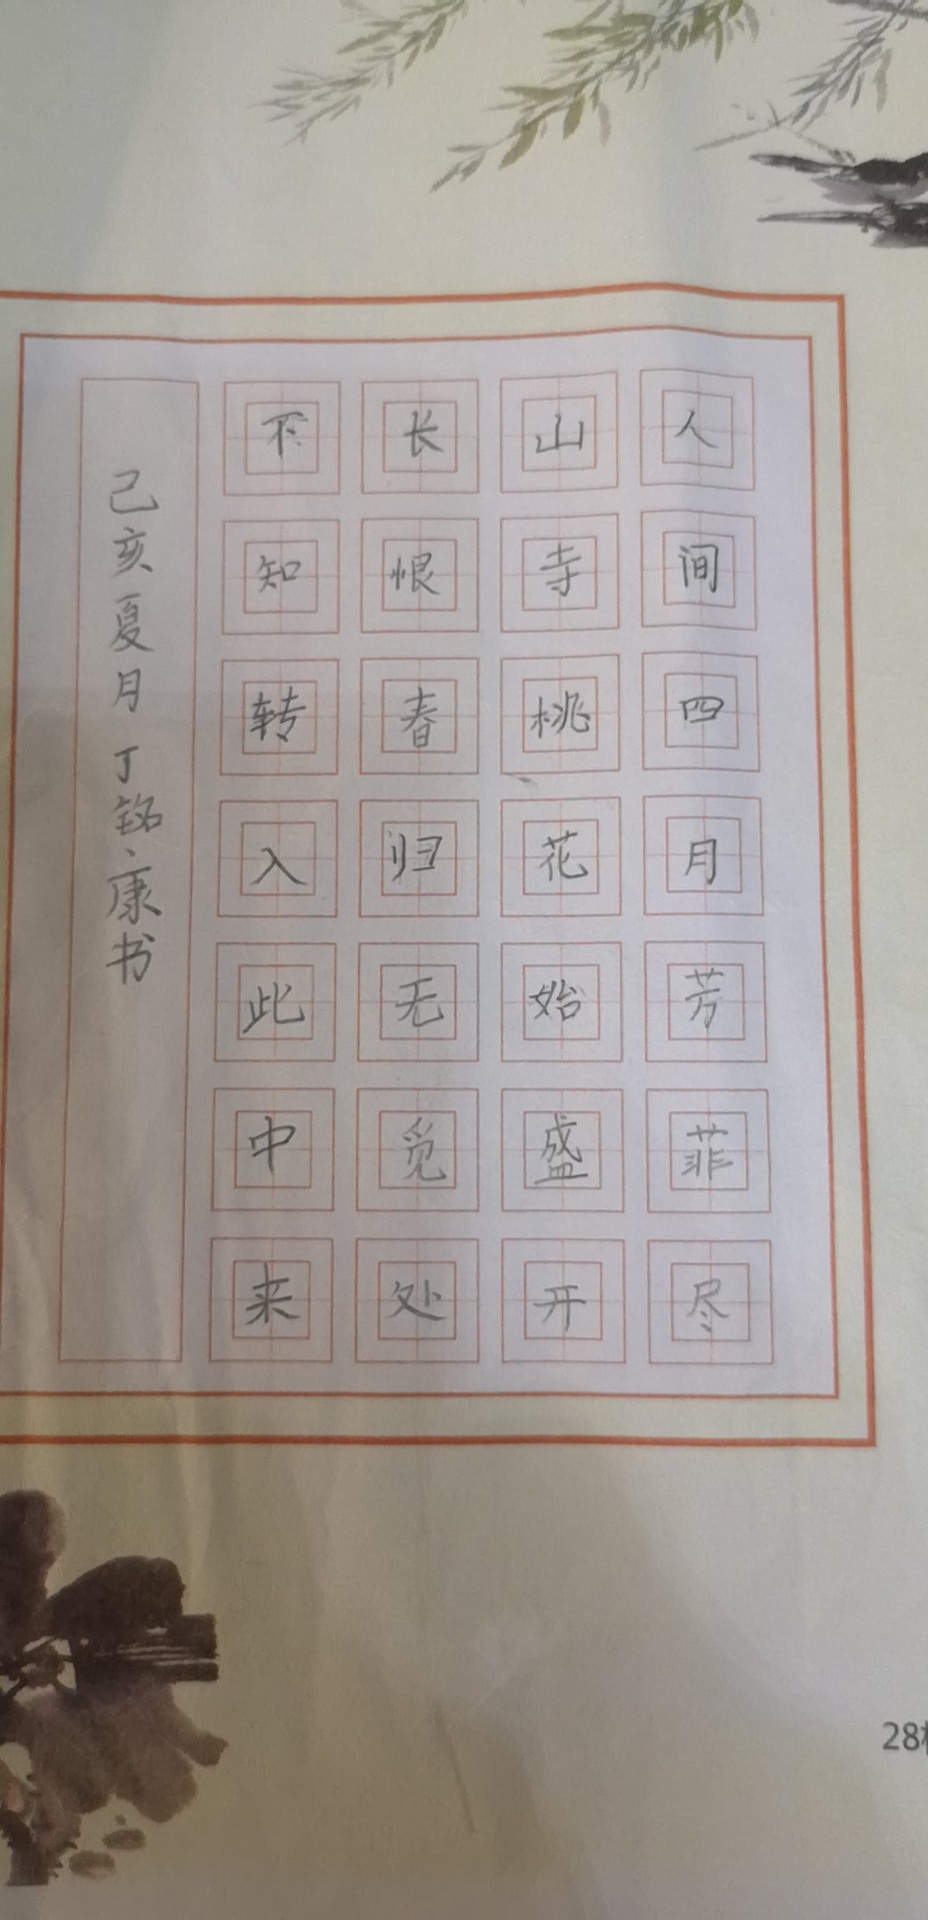 人间四月芳菲尽
山寺桃花始盛开
长恨春归无觅处
不知转入此中来
己亥夏月丁铭康书
28